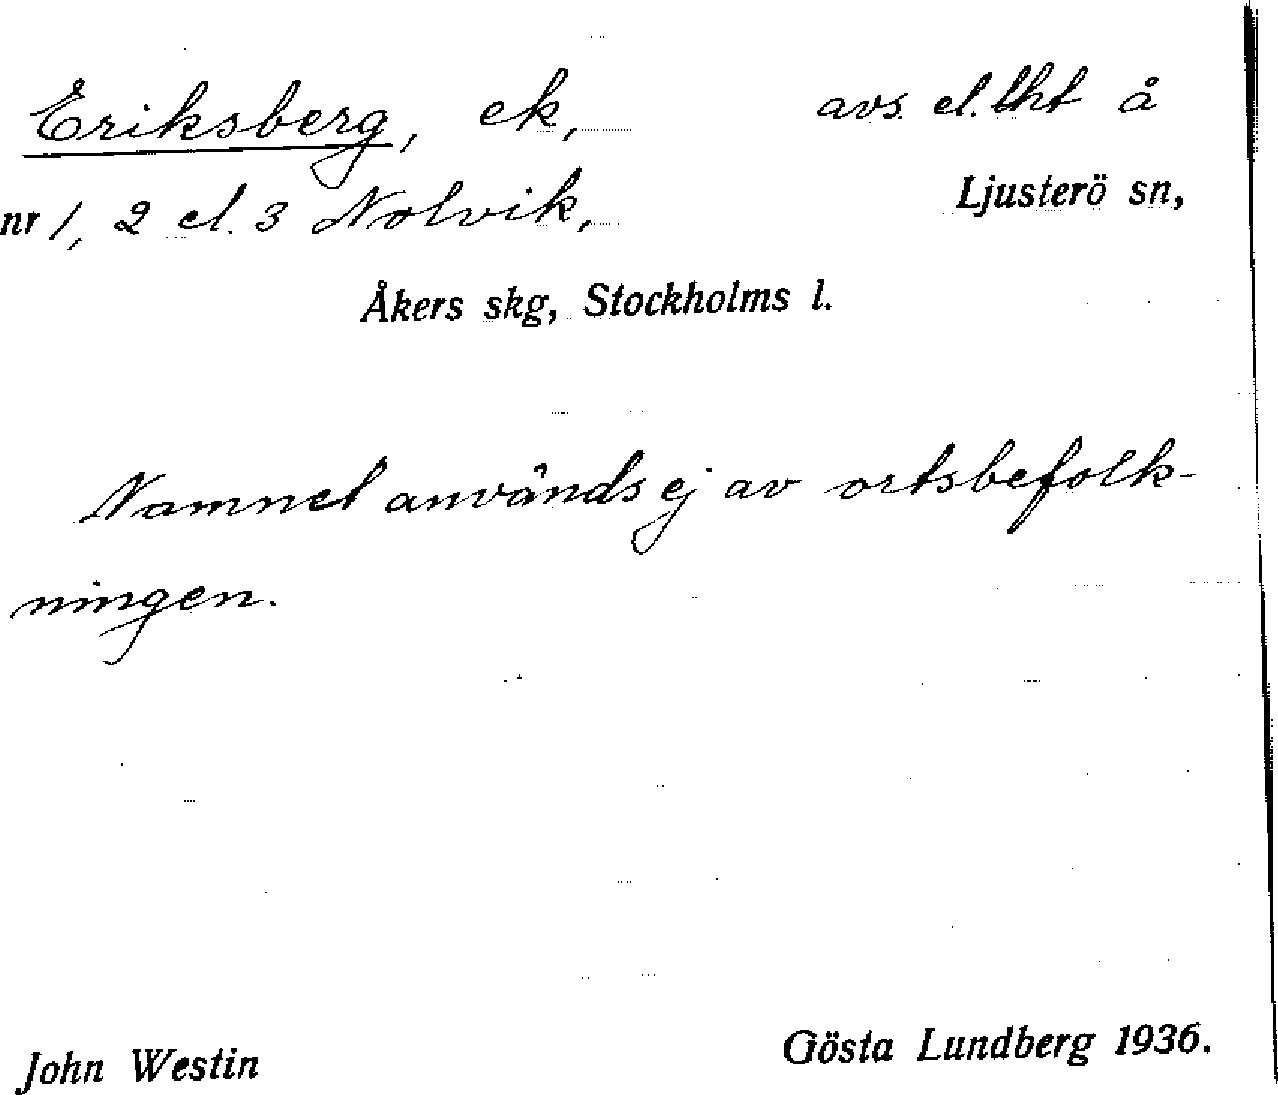 Eriksberg, ek, avs. el. lht å
nr 1, 2 el. 3 Nolvik, Ljusterö sn,
Åkers skg, Stockholms l.
Namnet används ej av ortsbefolk-
ningen.
John Westin Gösta Lundberg 1936.